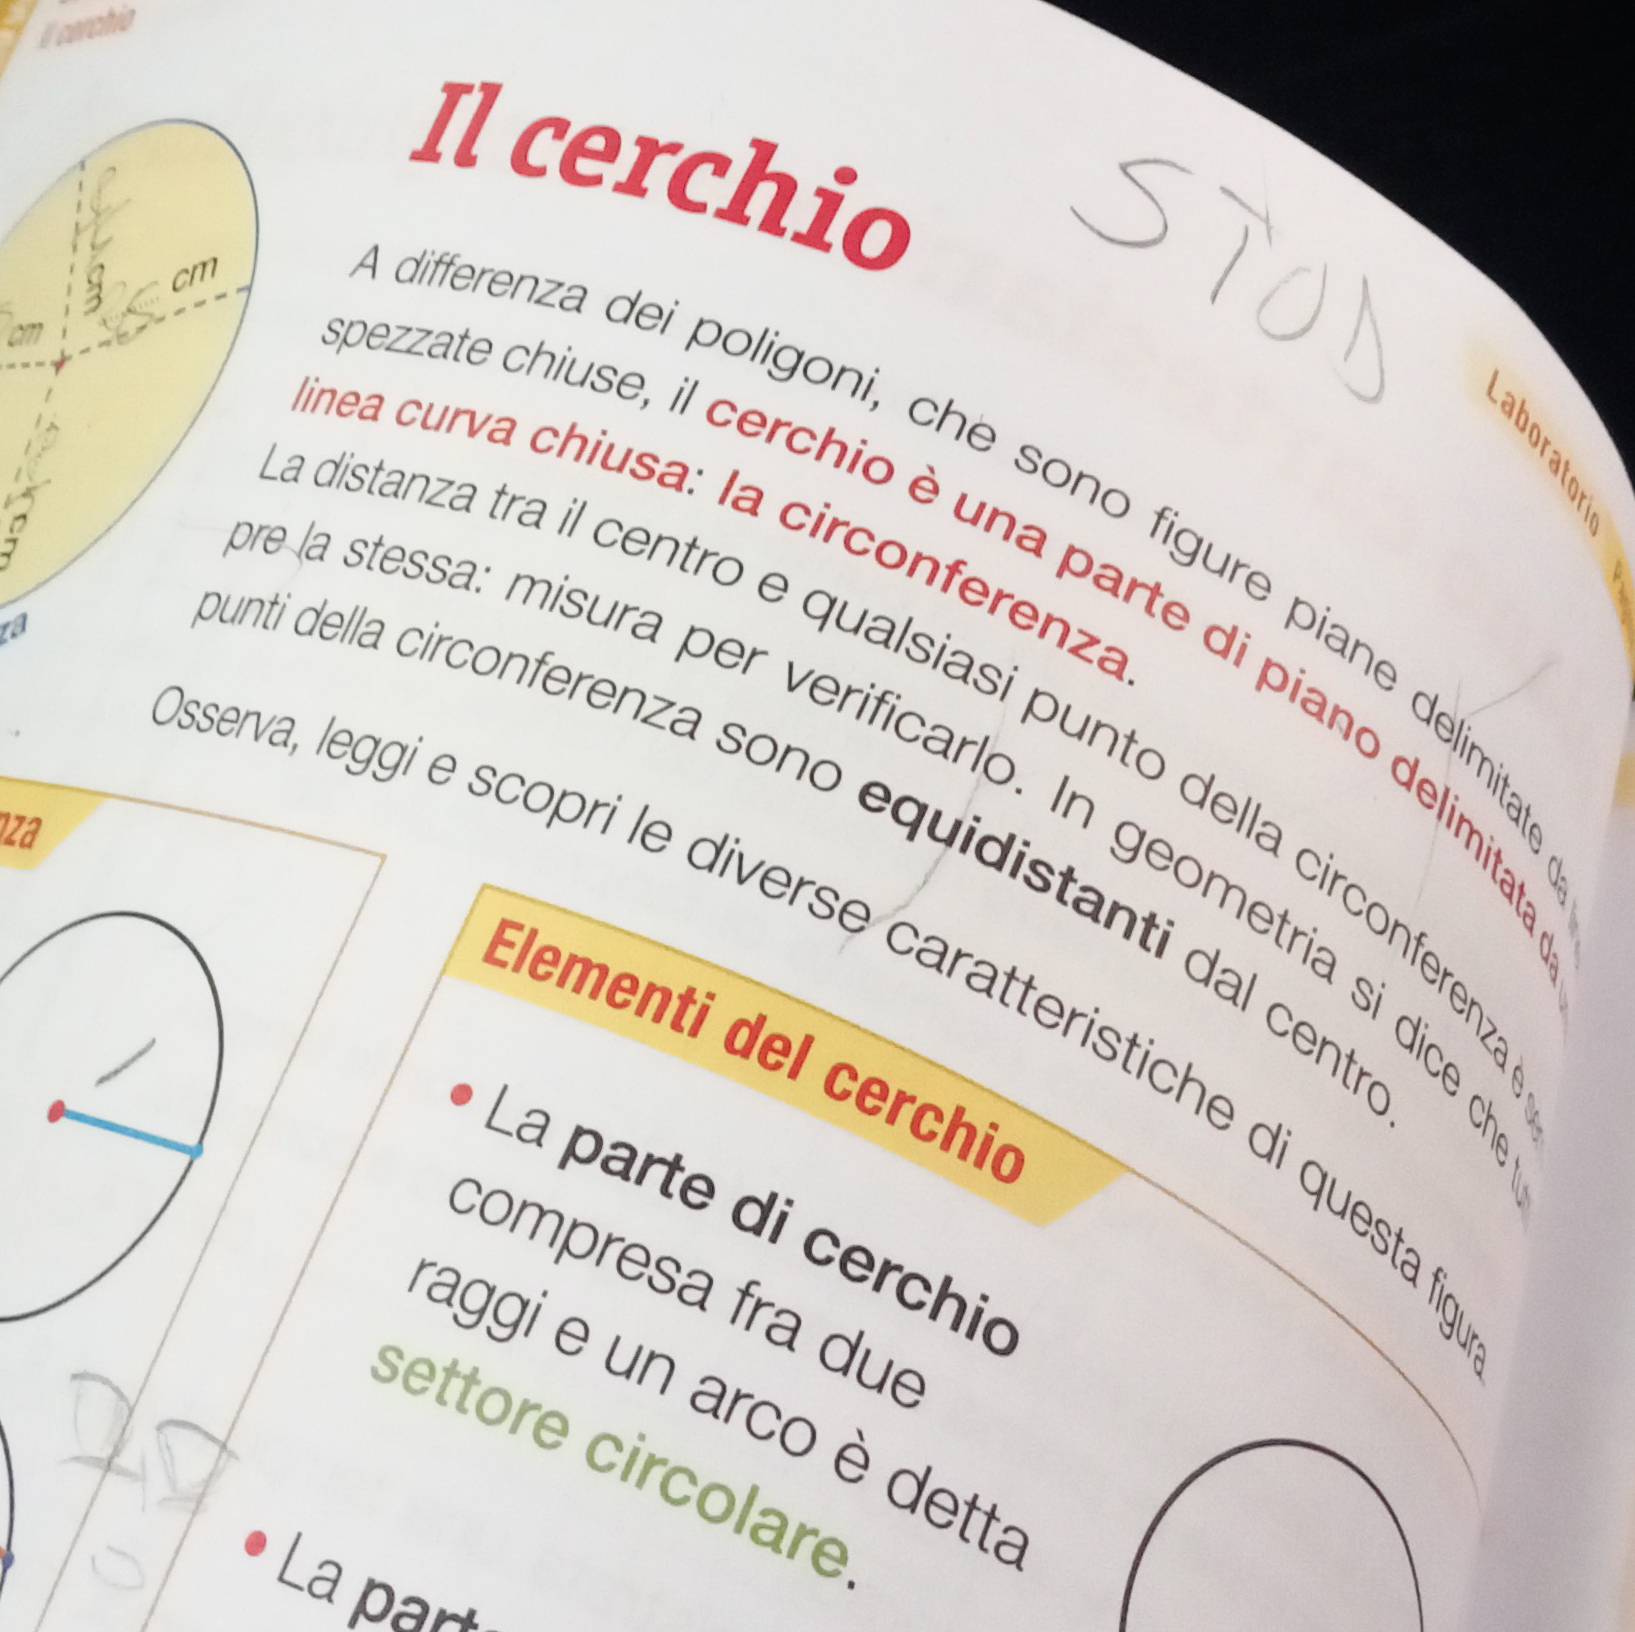 Il cerchio
Il cerchio
A differenza dei poligoni, che sono figure piane delimitate da
spezzate chiuse, il cerchio è una parte di piano delimitata da
linea curva chiusa: la circonferenza.
La distanza tra il centro e qualsiasi punto della circonferenza è
pre la stessa: misura per verificarlo. In geometria si dice che
punti della circonferenza sono equidistanti dal centro.
Osserva, leggi e scopri le diverse caratteristiche di questa figura
Laboratorio
cm
cm
cm
cm
za
nza
Elementi del cerchio
• La parte di cerchio
compresa fra due
raggi e un arco è detta
settore circolare.
• La